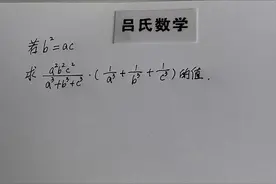 吕氏数学
若b²=ac
求 a²b²c²/(a³+b³+c³)·(1/a³+1/b³+1/c³)的值.